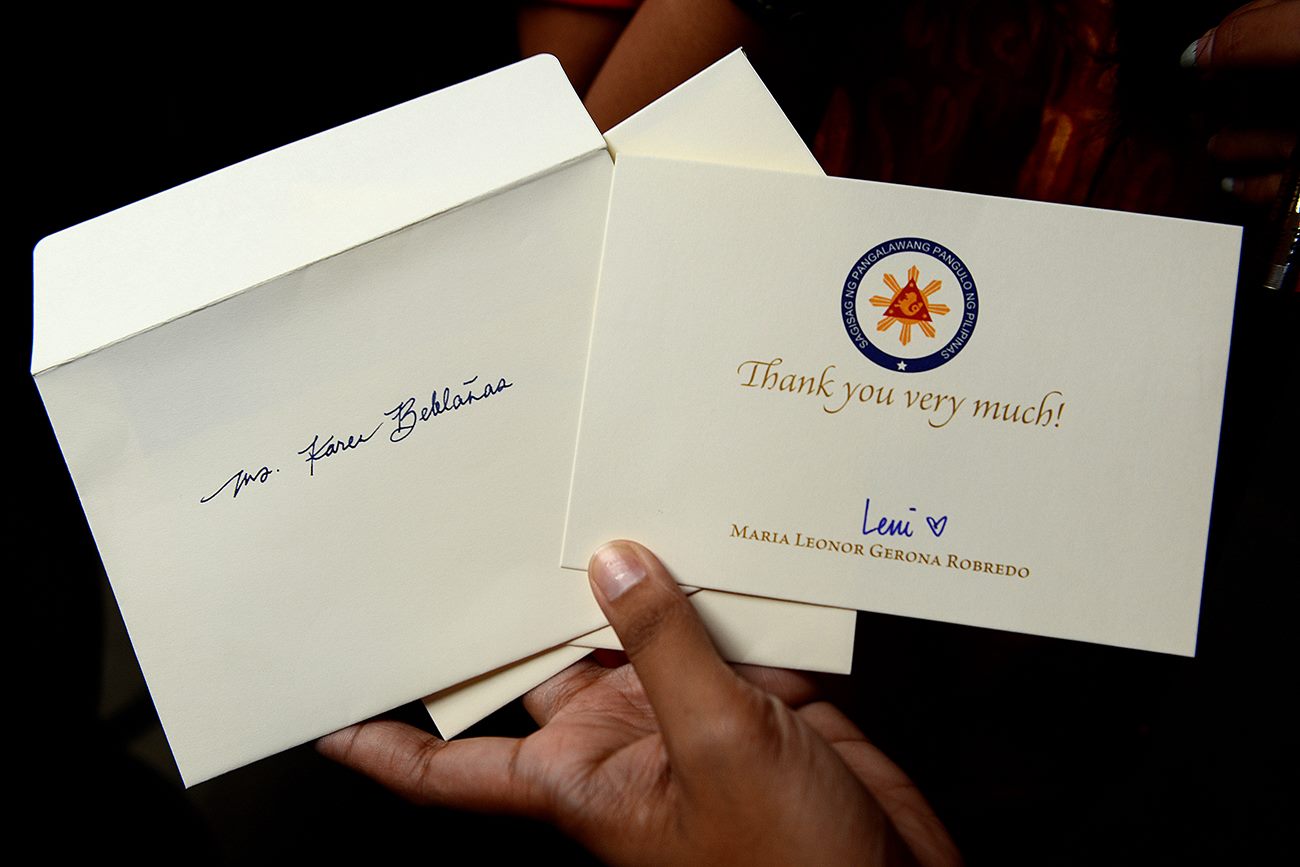 Ms. Karen Beblañas
SAGISAG NG PANGALAWANG PANGULO NG PILIPINAS
Thank you very much!
Leni
MARIA LEONOR GERONA ROBREDO